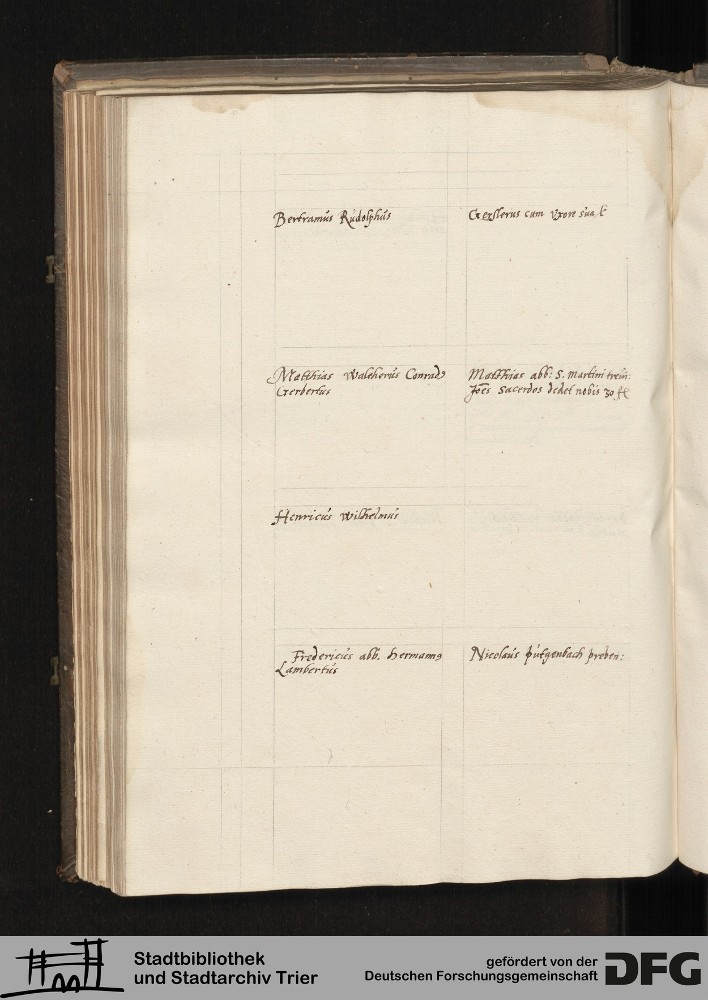 Bertramus Rudolphus
Gexlerus cum vxore sua
Matthias Waltherus Conrad9
Gerbertus
Matthias abb: S. Martini trein:
Joes Sacerdos dedit nobis 30 fl
Henricus Wilhelmus
Fredericus abb. Herman9
Lambertus
Nicolaus putgenbach preben:
Stadtbibliothek
und Stadtarchiv Trier
gefördert von der
Deutschen Forschungsgemeinschaft
DFG